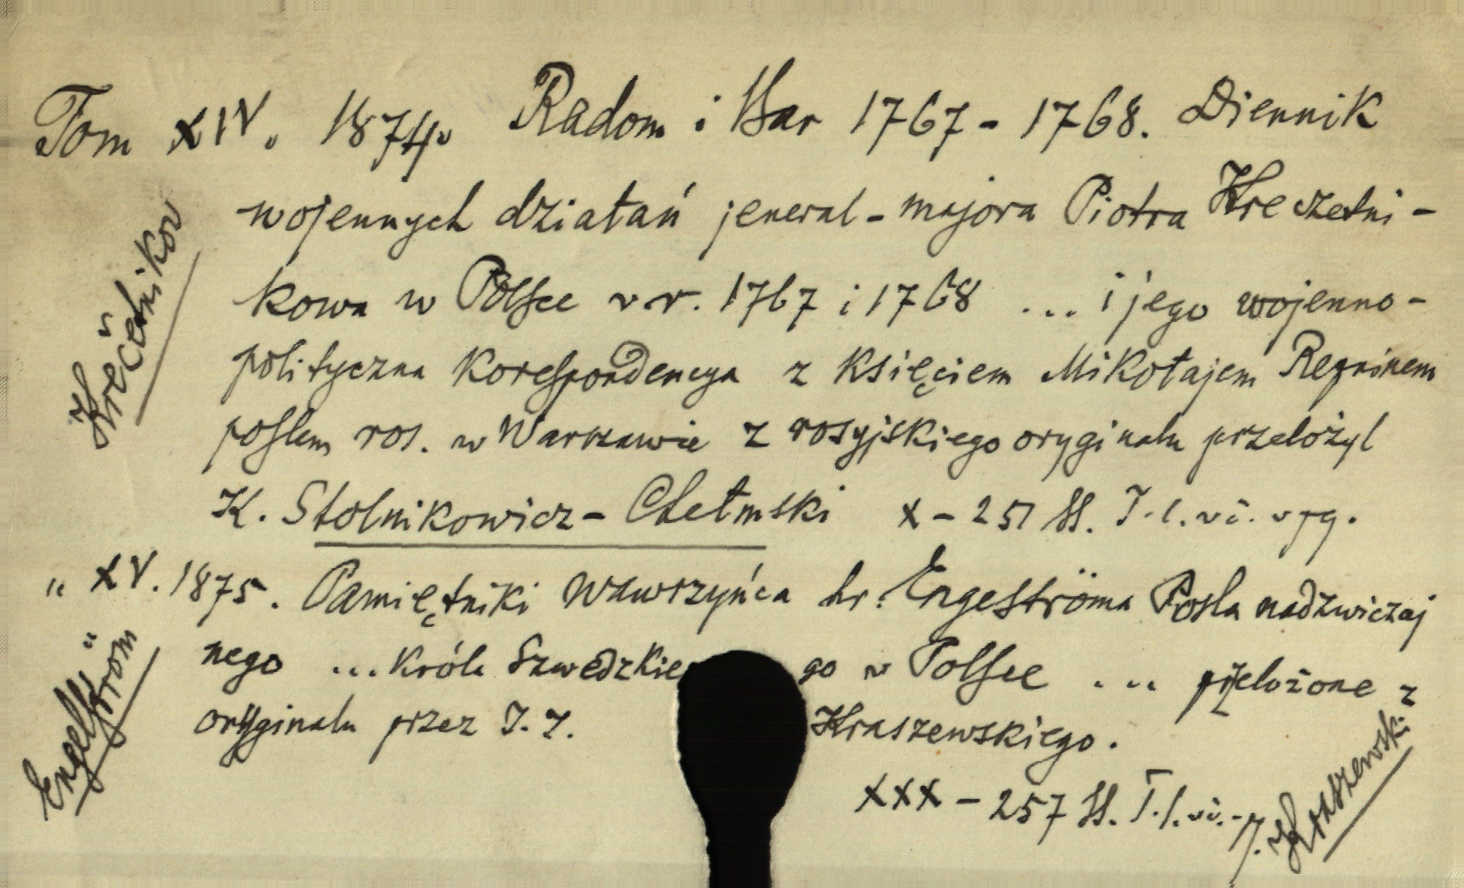 Tom XIV. 1874. Radom i Bar 1767-1768. Dziennik
wojennych działań jeneral-majora Piotra Kreczetni-
kowa w Polsce w r. 1767 i 1768 ... i jego wojenno-
polityczna korespondencya z księciem Mikołajem Repninem
posłem ros. w Warszawie z rosyjskiego oryginalu przelożyl
K. Stolnikowicz-Chełmski X-251 SS.
Krečetnikov
" XV. 1875. Pamiętniki Wawrzyńca hr. Engeströma Posla nadzwiczaj
nego ... króla Szwedzkie go w Polsce ... przelożone z
oryginalu przez J. I. Kraszewskiego.
XXX-257 SS.
Engelström
J. Kraszewski